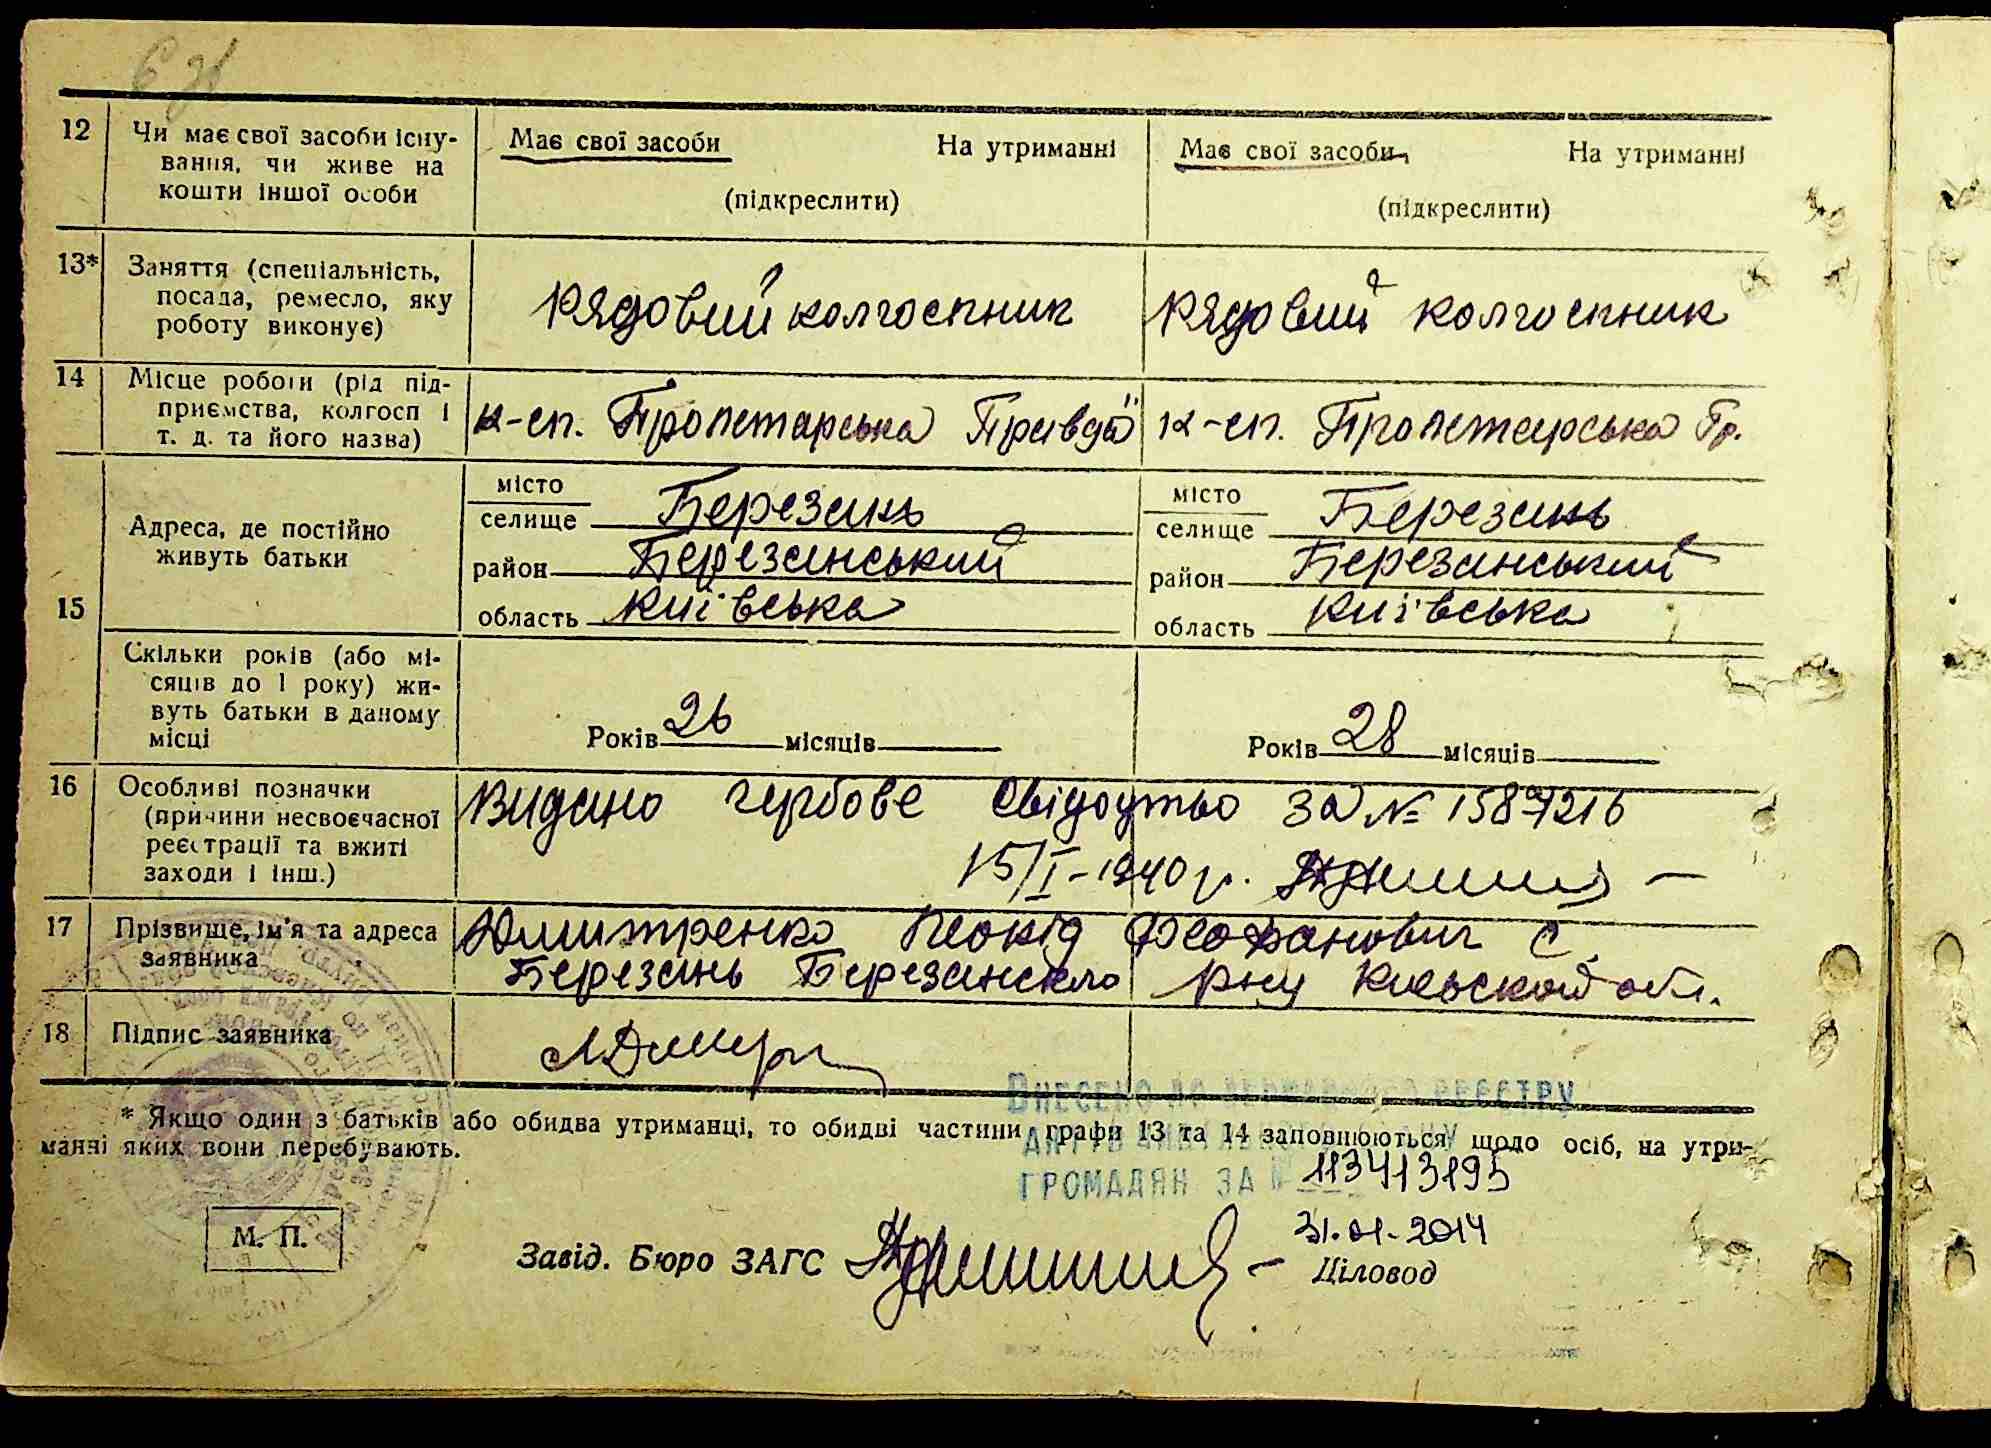 12 Чи має свої засоби існу-
вання, чи живе на
кошти іншої особи
Має свої засоби На утриманні
(підкреслити)
Має свої засоби На утриманні
(підкреслити)
13* Заняття (спеціальність,
посада, ремесло, яку
роботу виконує)
Рядовий колгоспник
Рядовий колгоспник
14 Місце роботи (рід під-
приємства, колгосп і
т. д. та його назва)
к-сп. Пролетарська Правда"
к-сп. Пролетарська Пр.
15 Адреса, де постійно
живуть батьки
місто
селище Березань
район Березанський
область Київська
місто
селище Березань
район Березанський
область Київська
Скільки років (або мі-
сяців до 1 року) жи-
вуть батьки в даному
місці
Років 26 місяців
Років 28 місяців
16 Особливі позначки
(причини несвоєчасної
реєстрації та вжиті
заходи і інш.)
Видано гербове свідоцтво за №
15/I-1940 р.
17 Прізвище, ім'я та адреса
заявника
Дмитренко Феофанович с.
Березань Березанского р-ну Киевской обл.
18 Підпис заявника
* Якщо один з батьків або обидва утриманці, то обидві частини графи 13 та 14 заповнюються щодо осіб, на утри-
манні яких вони перебувають.
Внесено до державного реєстру
актів цивільного стану
громадян за № 113413195
31.01.2014
Ціловод
М. П.
Завід. Бюро ЗАГС